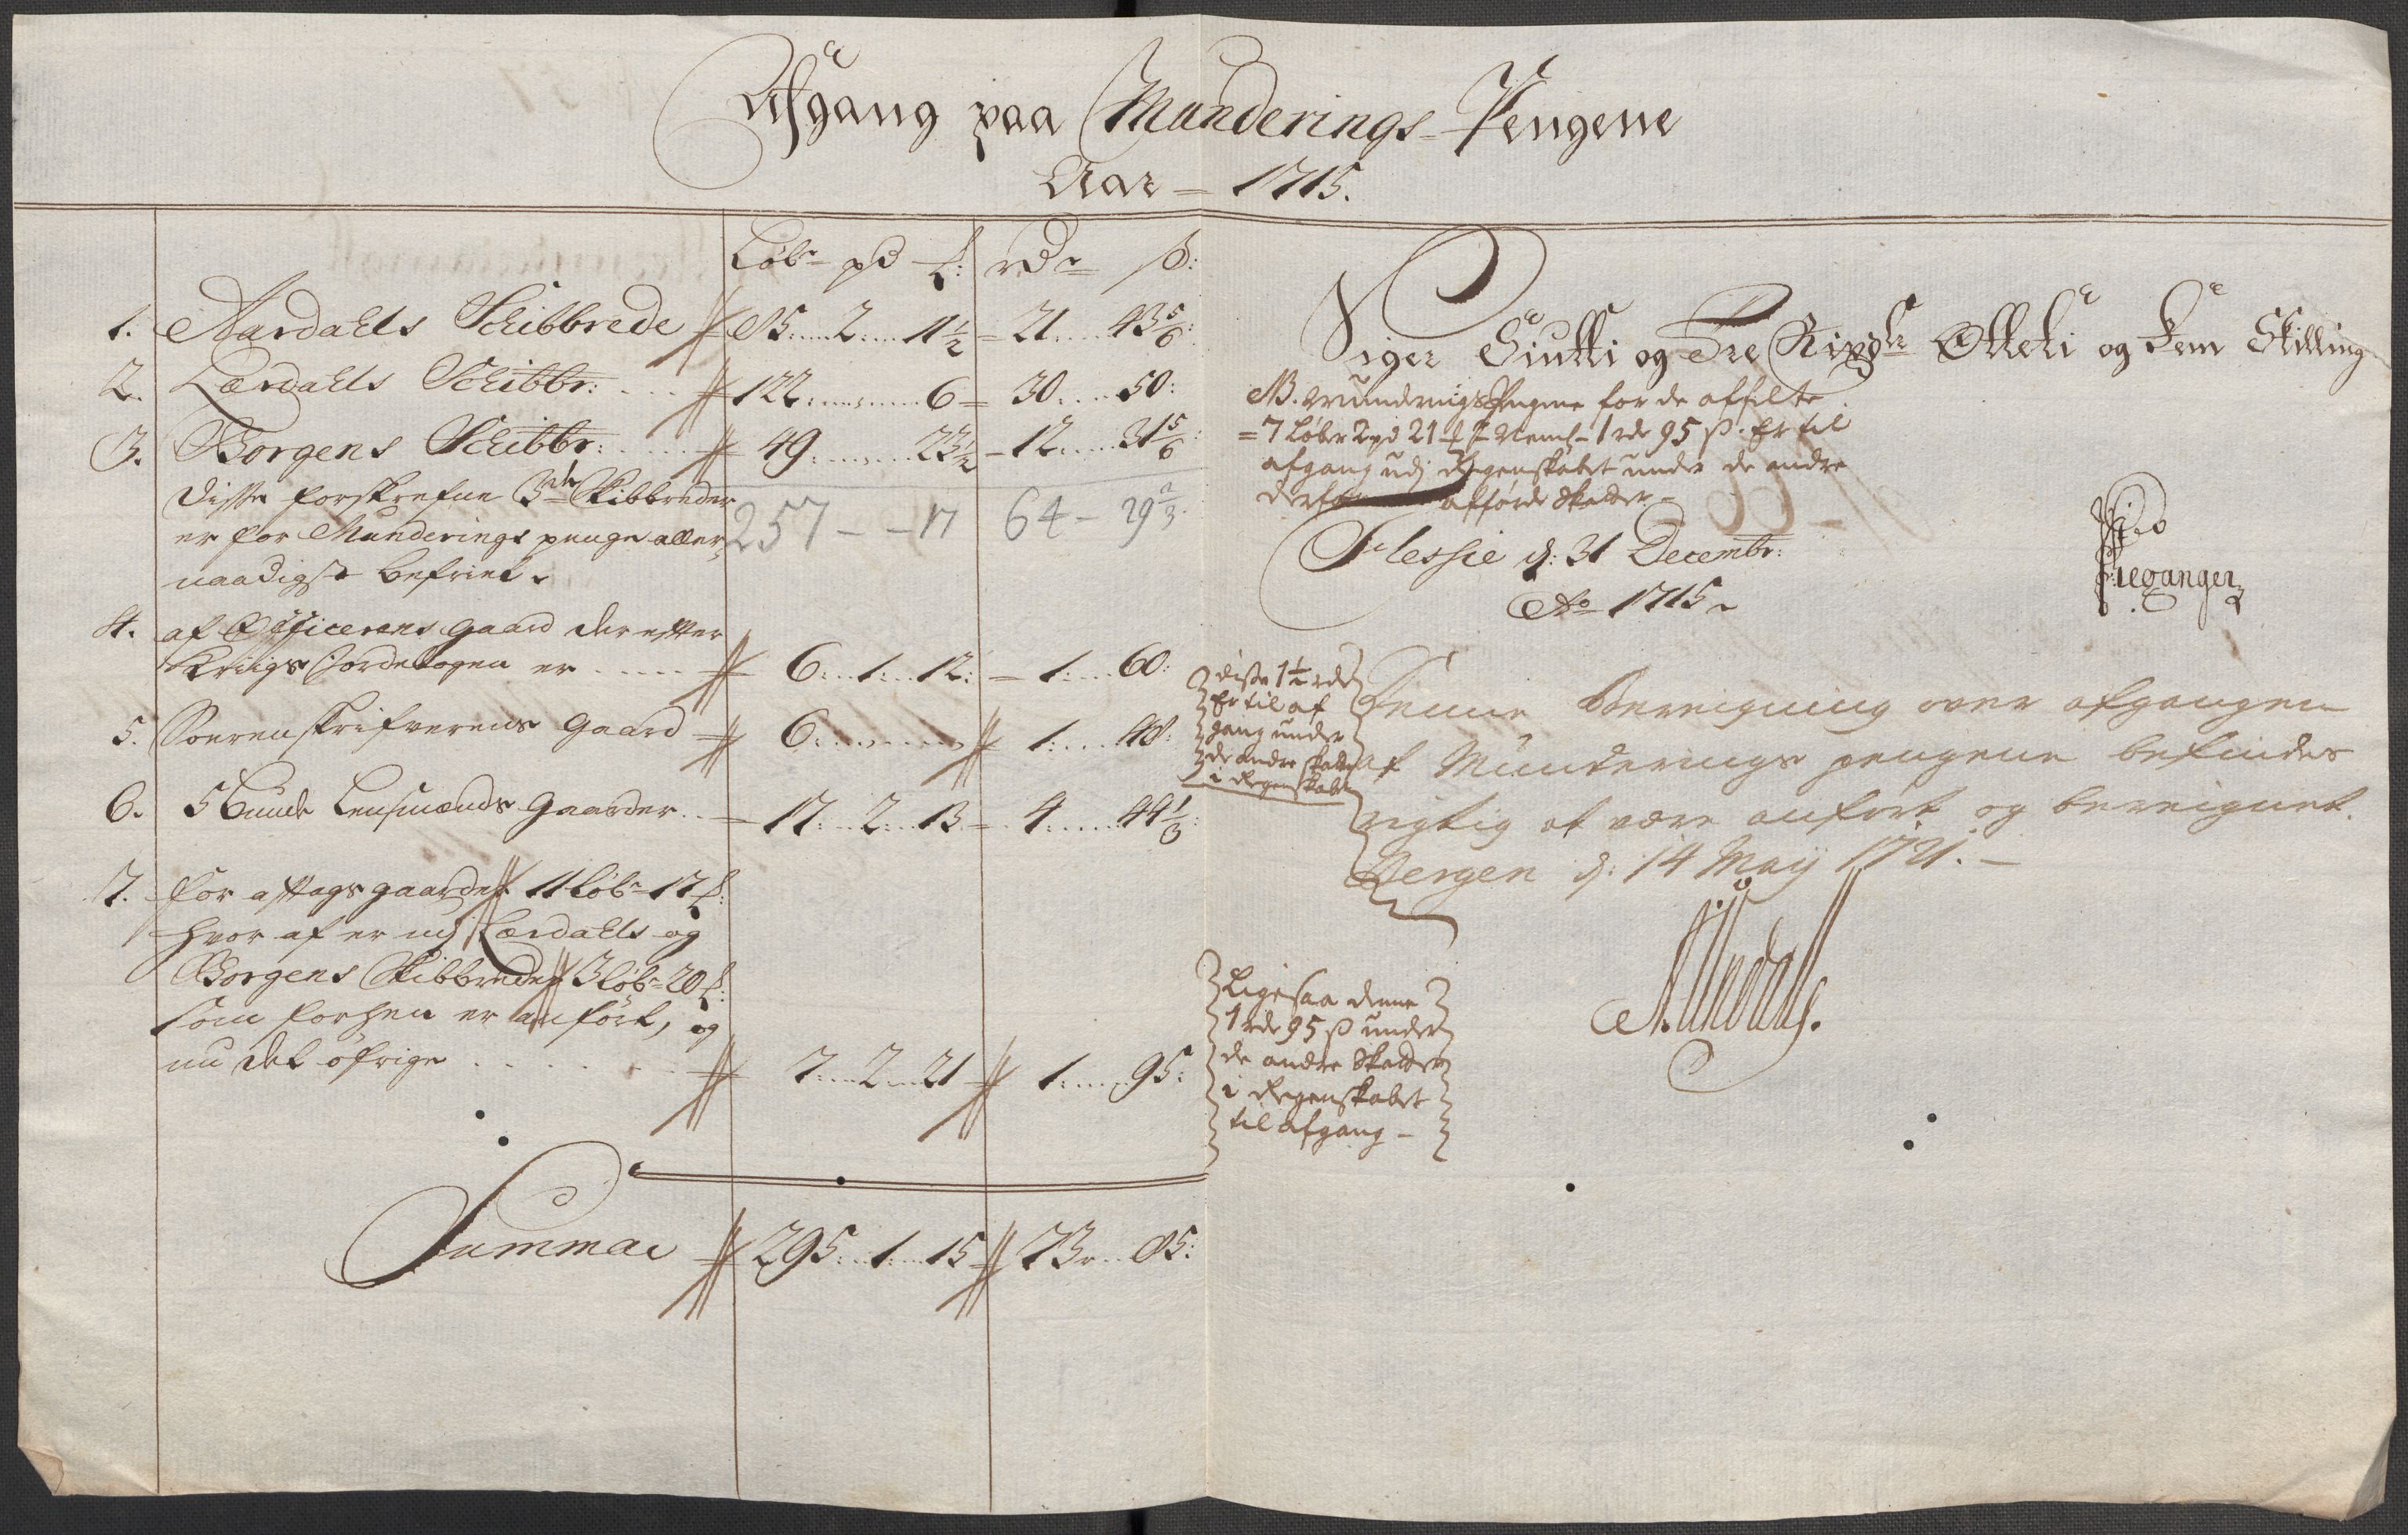 Afgang paa Munderings-Pengene
Aar = 1715.
Løbr pd £: rdr ß:
1. Aardahls Schibbrede 85. 2. 11½ = 21. 43 5/6:
2. Lærdahls Schibbr: 122. 6 = 30. 50:
3. Borgens Schibbr: 49. 23½ - 12. 31 5/6:
disse forskrefne 3de Skibbreder
er for Munderings penge aller
naadigst befriet.
257 - - 17 64 - 29 2/3.
4. af Officerens gaard der efter
Kriigs Jordebogen er 6. 1. 12: - 1. 60:
5. Sorenskrifverens Gaard 6. 1. 48:
6. 5 Bunde Lensmænds Gaarder 17. 2. 13 = 4. 44 1/3:
7. for aftags gaarder 11 Løbr 17 £:
hvor af er udj Lærdahls og
Borgens Skibbreder 3 Løbr 20 £:
som forhen er anført, og
nu det øfrige 7. 2. 21 1. 95:
Summae 295. 1. 15 73. 85:
Siger Siutti og Tre Rixdlr Otteti og Fem Skilling
NB. Munderings Pengene for de affelte
= 7 Løber 2 pd 21 £ Neml- 1 rde 95 ß. Er til
afgang udj Regenskabet under de andre
afførde Skatter -
Flessie d: 31 Decembr:
Ao 1715
disse 1½ rde
Er til af
gang under
de andre skatter
i Regenskabet
Denne Bereigning over afgangen
af Munderings pengene befindes
rigtig at være anført og bereignet.
Bergen d: 14 Maij 1721. -
Ligesaa denne
1 rde 95 ß under
de andre Skatter
i Regenskabet
til afgang -